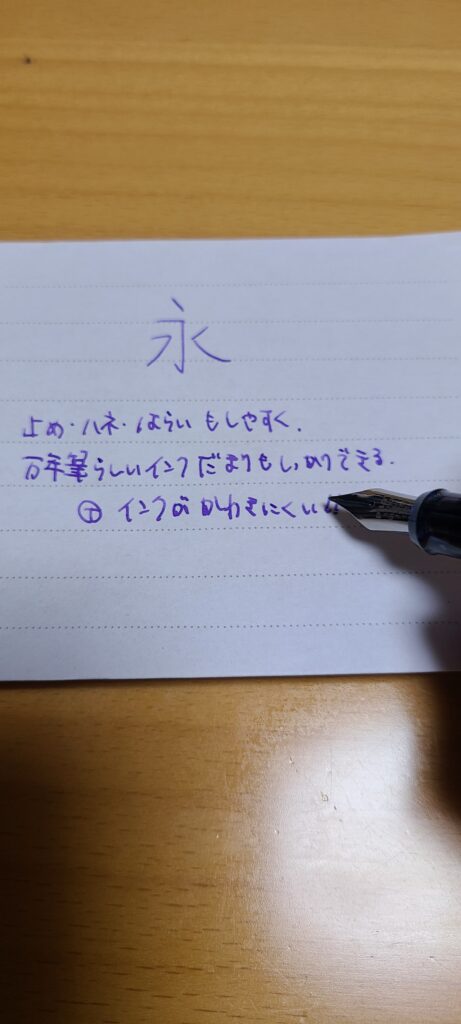 永
止め・ハネ・はらいもしやすく、
万年筆らしいインクだまりもしっかりできる.
㊦ インクがかわきにくい